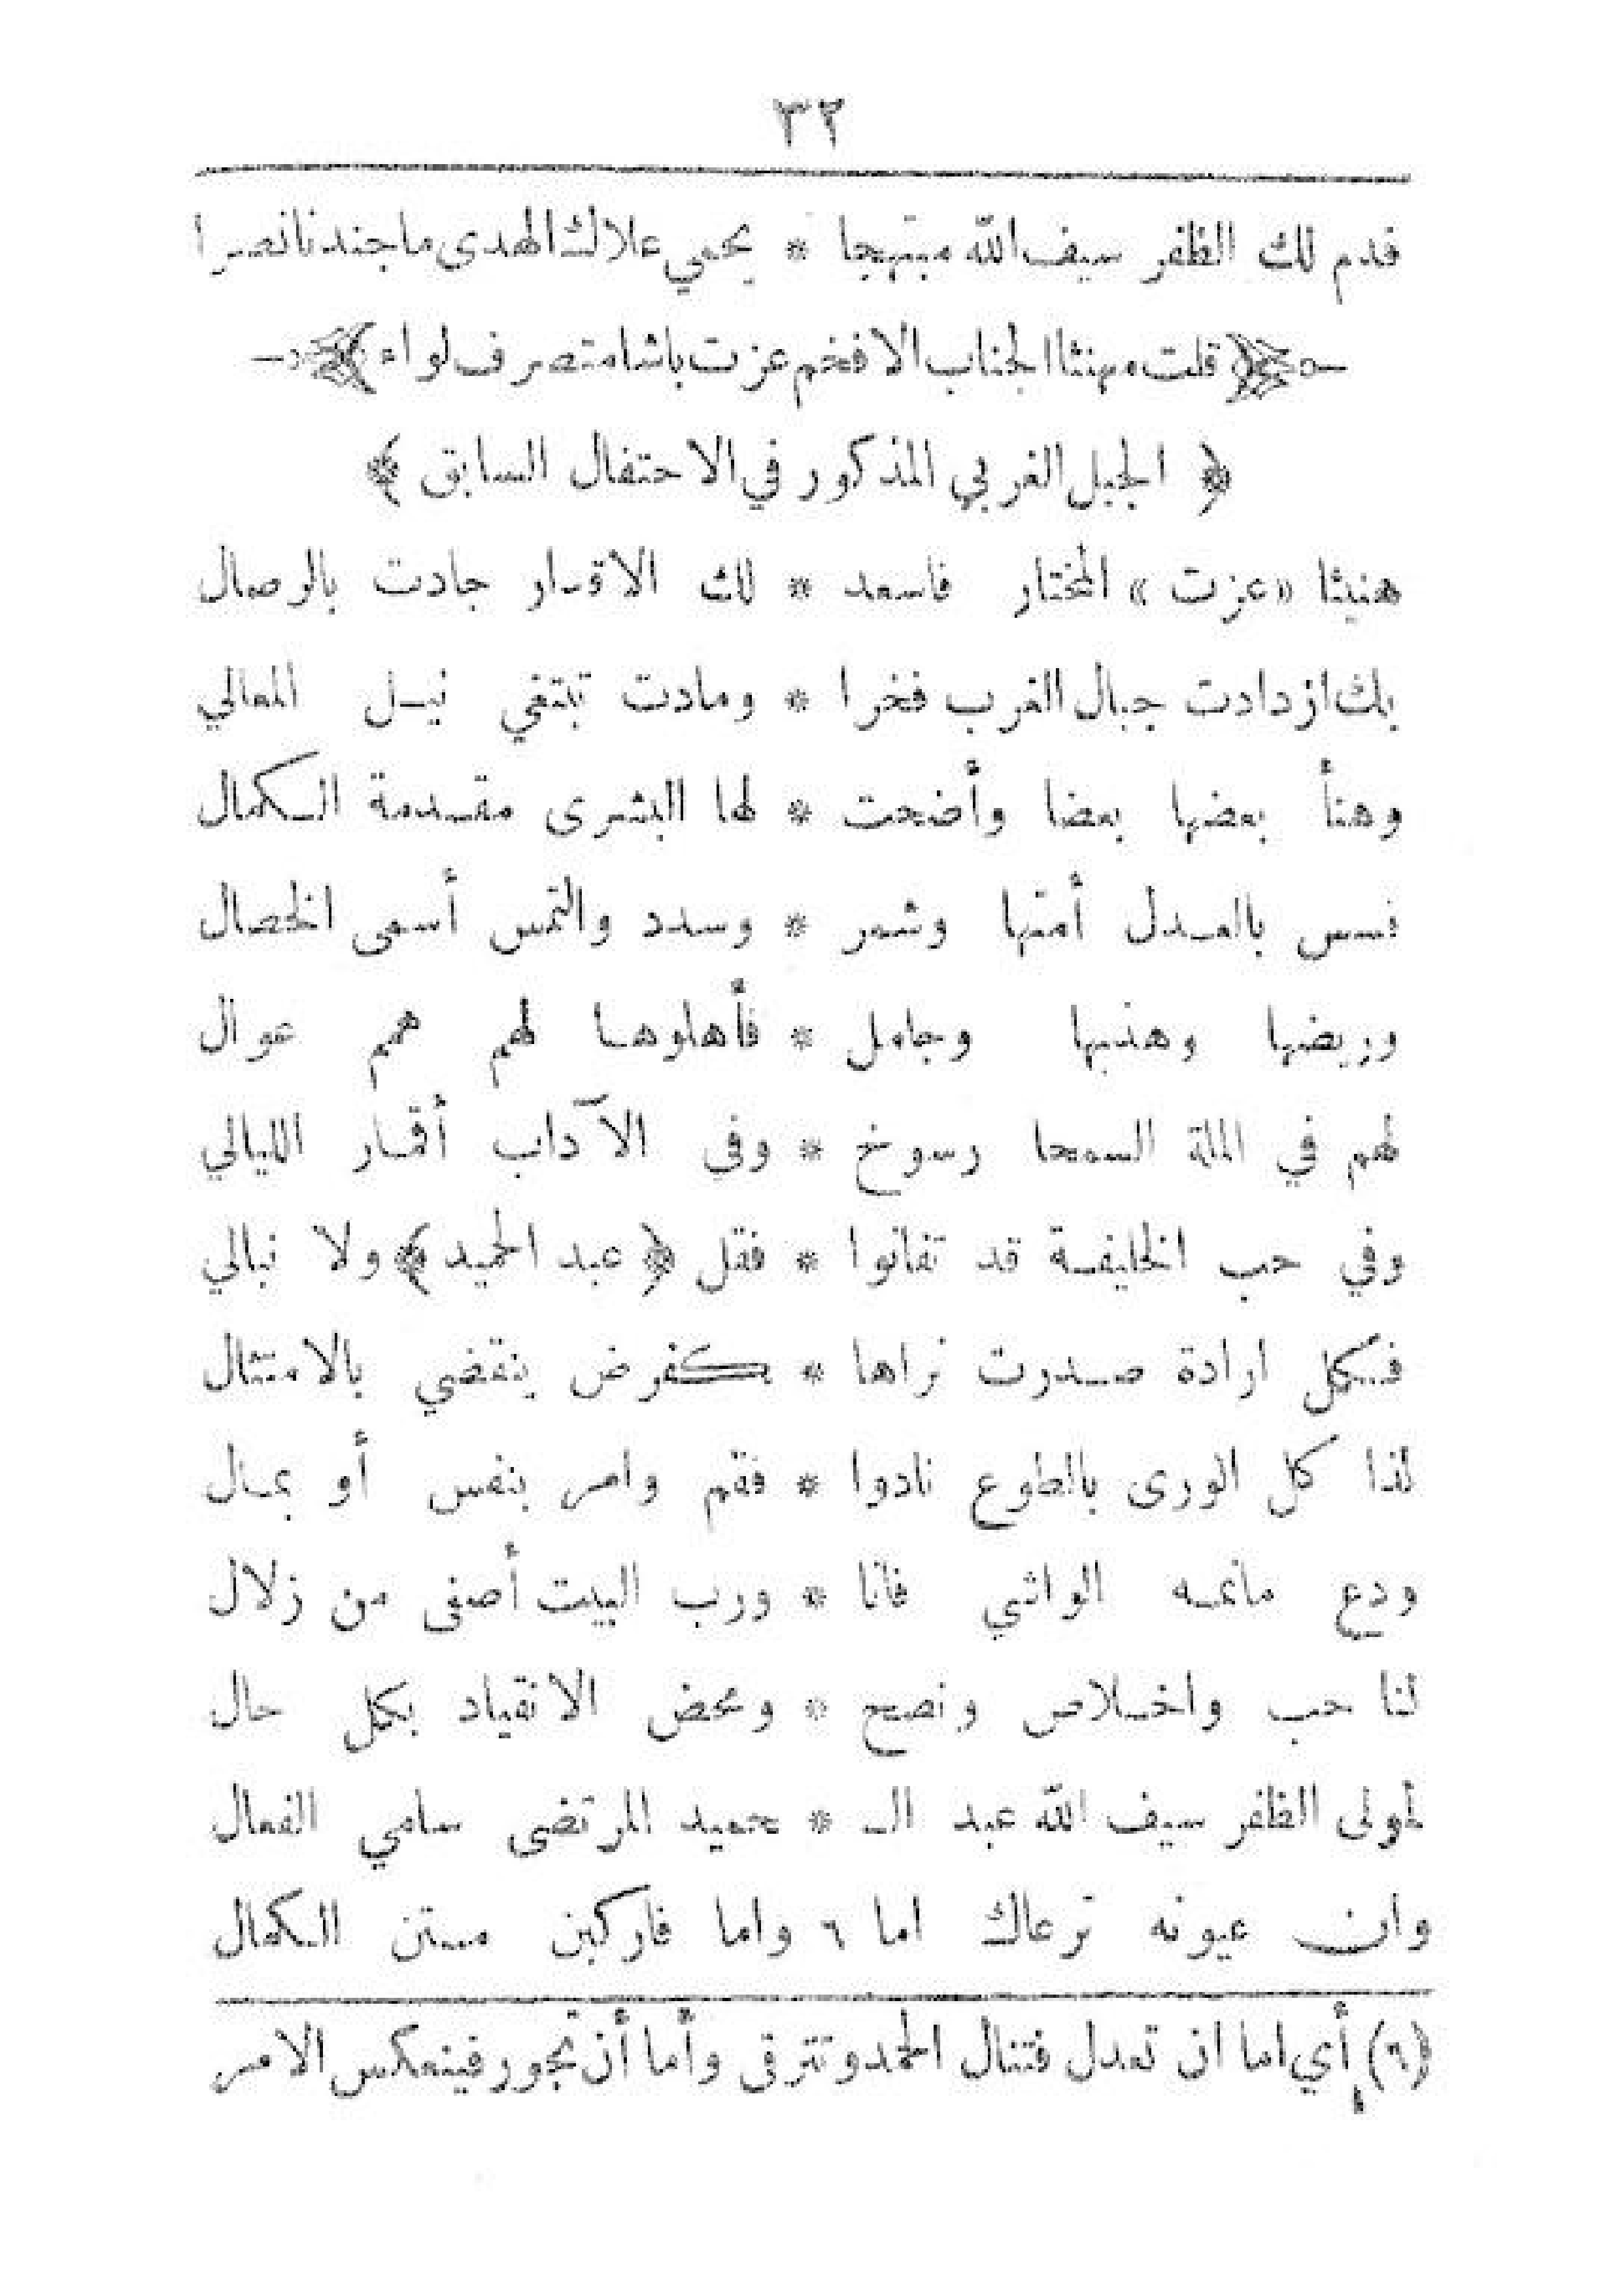 ٣٢
فدم لك الظفر سيف الله مبتهجا * يحمي علاك الهدى ما جندنا نصرا
﴿ قلت مهنئا الجناب الافخم عزت باشا متصرف لواء ﴾
﴿ الجبل الغربي المذكور في الاحتفال السابق ﴾
هنيئا «عزت» المختار فاسعد * لك الاقدار جادت بالوصال
بك ازدادت جبال الغرب فخرا * ومادت تبتغي نيل المعالي
وهنأ بعضها بعضا وأضحت * لها البشرى مقدمة الكمال
فسس بالعدل أمتها وشمر * وسدد والتمس أسمى الخصال
وريضها وهذبها وجامل * فأهلوها لهم همم عوال
لهم في الملة السمحا رسوخ * وفي الآداب أقمار الليالي
وفي حب الخليفة قد تفانوا * فقل ﴿عبد الحميد﴾ ولا نبالي
فكل ارادة صدرت نراها * كفرض ينقضي بالامتثال
لذا كل الورى بالطوع نادوا * فقم وامر بنفس أو بمال
ودع مانمه الواشي فانا * ورب البيت أصفى من زلال
لنا حب واخلاص ونصح * ومحض الانقياد بكل حال
لمولى الظفر سيف الله عبد الـ * حميد المرتضى سامي الفعال
وان عيونه ترعاك اما ٦ واما فاركبن متن الكمال
(٦) أي اما ان تعدل فتنال الحمد وتترقى وأما أن تجور فينعكس الامر